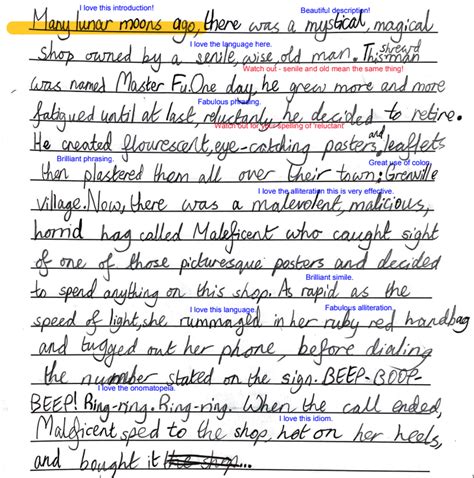 I love this introduction!
Beautiful description!
Many lunar moons ago, there was a mystical, magical
I love the language here.
shop owned by a senile, wise old man. This shrewd man
Watch out - senile and old mean the same thing!
was named Master Fu. One day, he grew more and more
Fabulous phrasing.
fatigued until at last, reluctanly, he decided to retire.
Watch out for your spelling of 'reluctant'
He created flourescert, eye-catching posters and leaflets
Brilliant phrasing.
Great use of colon.
then plastered them all over their town: Grenville
I love the alliteration this is very effective.
village. Now, there was a malevolent, malicious,
horrid hag called Maleficent who caught sight
of one of those picturesque posters and decided
Brilliant simile.
to spend anything on this shop. As rapid as the
I love this language.
Fabulous alliteration.
speed of light, she rummaged in her ruby red handbag
and tugged out her phone, before dialing
the number stated on the sign. BEEP-BOOP-
I love the onomatopeia.
BEEP! Ring-ring. Ring-ring. When the call ended,
I love this idiom.
Maleficent sped to the shop, hot on her heels,
and bought it the shop...